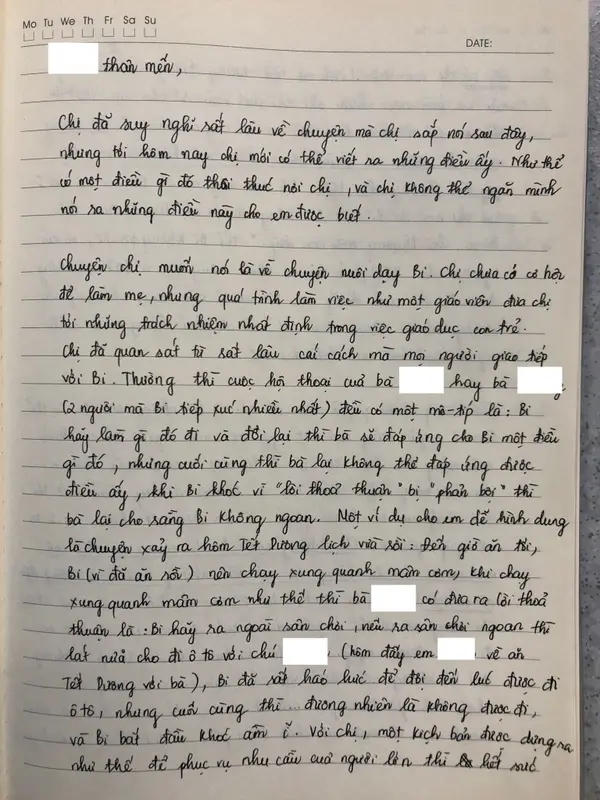 Mo Tu We Th Fr Sa Su
DATE:
thân mến,
Chị đã suy nghĩ rất lâu về chuyện mà chị sắp nói sau đây,
nhưng tới hôm nay chị mới có thể viết ra những điều ấy. Như thể
có một điều gì đó thôi thúc nơi chị, và chị không thể ngăn mình
nói ra những điều này cho em được biết.
Chuyện chị muốn nói là về chuyện nuôi dạy Bi. Chị chưa có cơ hội
để làm mẹ, nhưng quá trình làm việc như một giáo viên đưa chị
tới những trách nhiệm nhất định trong việc giáo dục con trẻ.
Chị đã quan sát từ rất lâu cái cách mà mọi người giao tiếp
với Bi. Thường thì cuộc hội thoại của bà hay bà
(2 người mà Bi tiếp xúc nhiều nhất) đều có một mô-típ là: Bi
hãy làm gì đó đi và đổi lại thì bà sẽ đáp ứng cho Bi một điều
gì đó, nhưng cuối cùng thì bà lại không thể đáp ứng được
điều ấy, khi Bi khóc vì "lời thoả thuận" bị "phản bội" thì
bà lại cho rằng Bi không ngoan. Một ví dụ cho em dễ hình dung
là chuyện xảy ra hôm Tết Dương lịch vừa rồi: Đến giờ ăn tối,
Bi (vì đã ăn rồi) nên chạy xung quanh mâm cơm, khi chạy
xung quanh mâm cơm như thế thì bà có đưa ra lời thoả
thuận là: Bi hãy ra ngoài sân chơi, nếu ra sân chơi ngoan thì
lát nữa cho đi ô tô với chú (hôm đấy em về ăn
Tết Dương với bà), Bi đã rất háo hức để đợi đến lúc được đi
ô tô, nhưng cuối cùng thì... đương nhiên là không được đi,
và Bi bắt đầu khóc ầm ĩ. Với chị, một kịch bản được dựng ra
như thế để phục vụ nhu cầu của người lớn thì hết sức